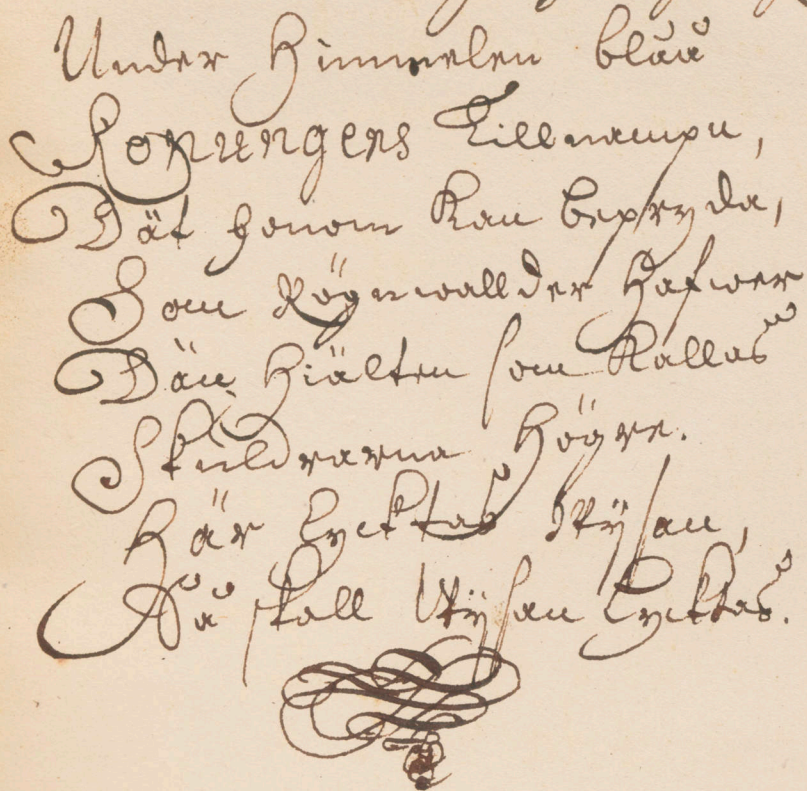 Under Himmelen blåå
Konungens Tillnampn,
Dät honom kan bepryda,
Som Rögnwallder Hafwer
Dän Hiälten som Kallas
Skuldrarna Högre.
Här lycktas Wÿsan,
Så skall Wÿsan lycktas.